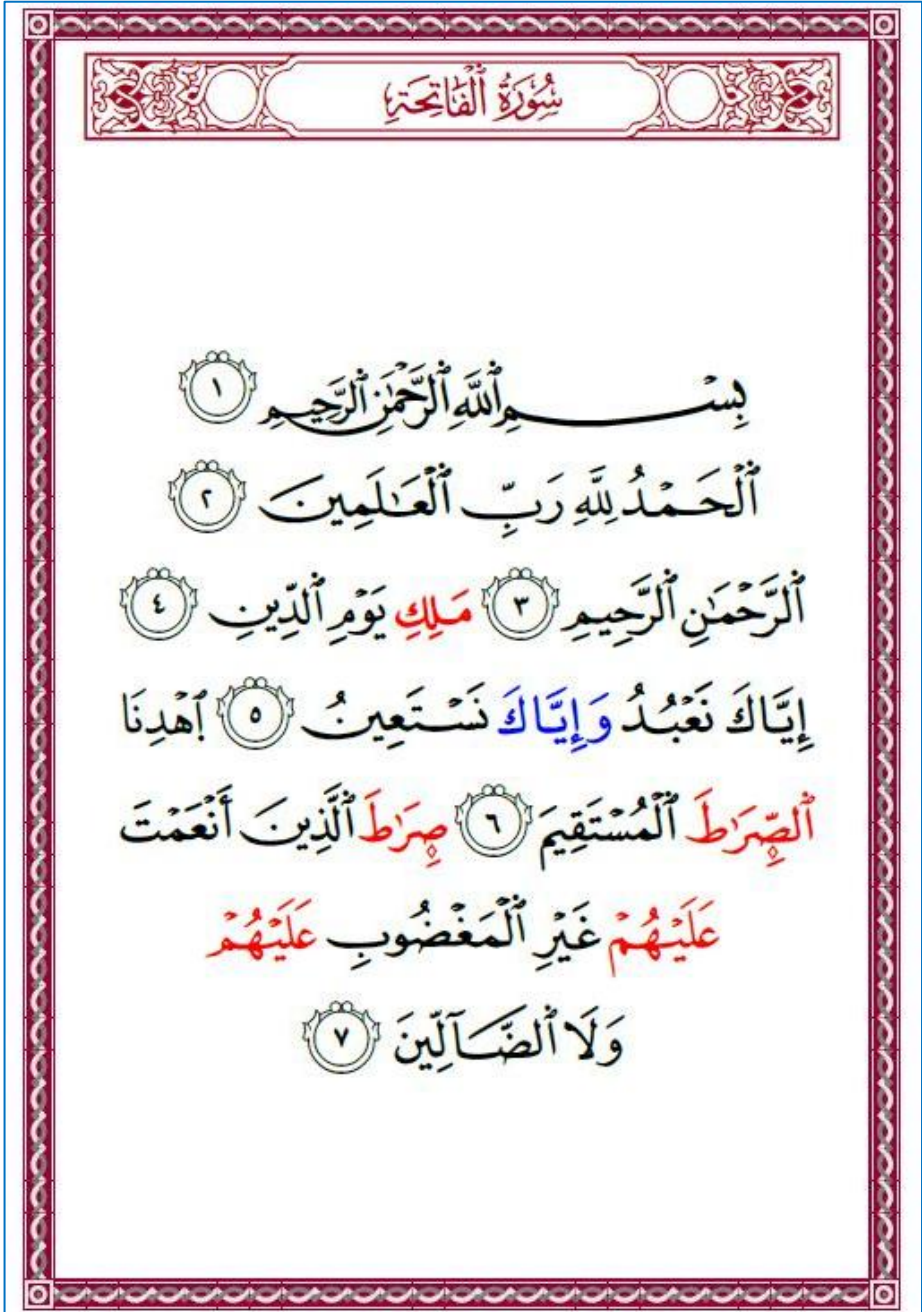 سُورَةُ ٱلْفَاتِحَةِ
بِسْمِ ٱللَّهِ ٱلرَّحْمَٰنِ ٱلرَّحِيمِ ١
ٱلْحَمْدُ لِلَّهِ رَبِّ ٱلْعَٰلَمِينَ ٢
ٱلرَّحْمَٰنِ ٱلرَّحِيمِ ٣ مَلِكِ يَوْمِ ٱلدِّينِ ٤
إِيَّاكَ نَعْبُدُ وَإِيَّاكَ نَسْتَعِينُ ٥ ٱهْدِنَا
ٱلصِّۜرَٰطَ ٱلْمُسْتَقِيمَ ٦ صِرَٰطَ ٱلَّذِينَ أَنْعَمْتَ
عَلَيْهُمْ غَيْرِ ٱلْمَغْضُوبِ عَلَيْهُمْ
وَلَا ٱلضَّآلِّينَ ٧